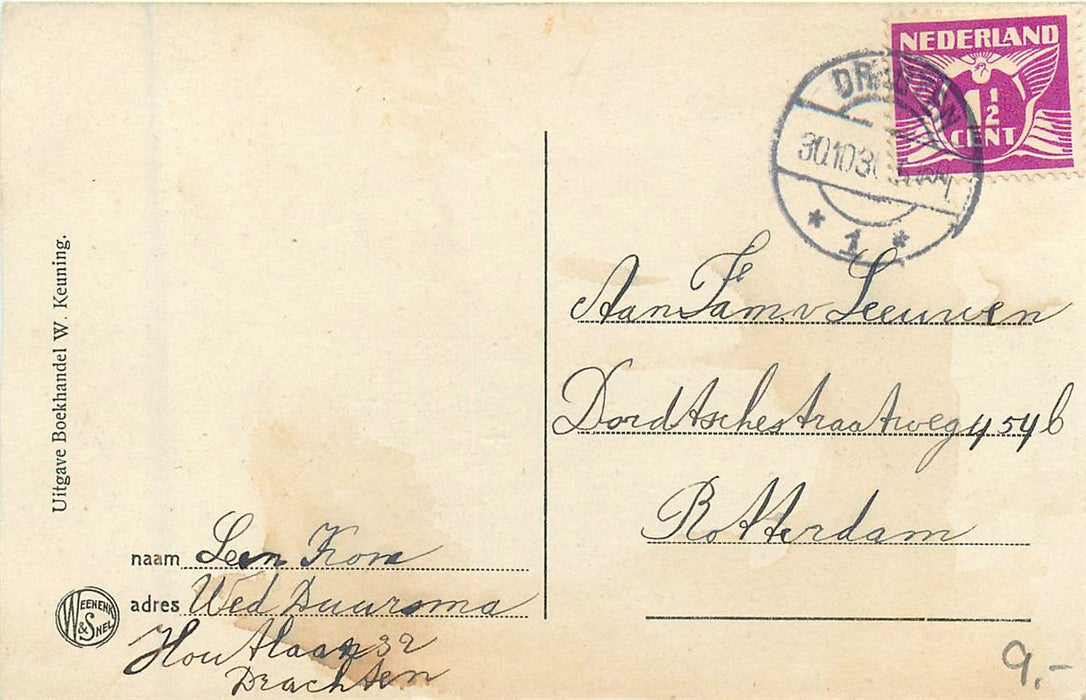 Uitgave Boekhandel W. Keuning.
NEDERLAND
1 1/2
CENT
DRACHTEN
30.10.3
* 1 *
Aan Fam. v Leeuwen
Dordtschestraatweg 454 b
Rotterdam
naam Leen Krom
adres Wed Duursma
Houtlaan 32
Drachten
WEENENK & SNEL
9.-